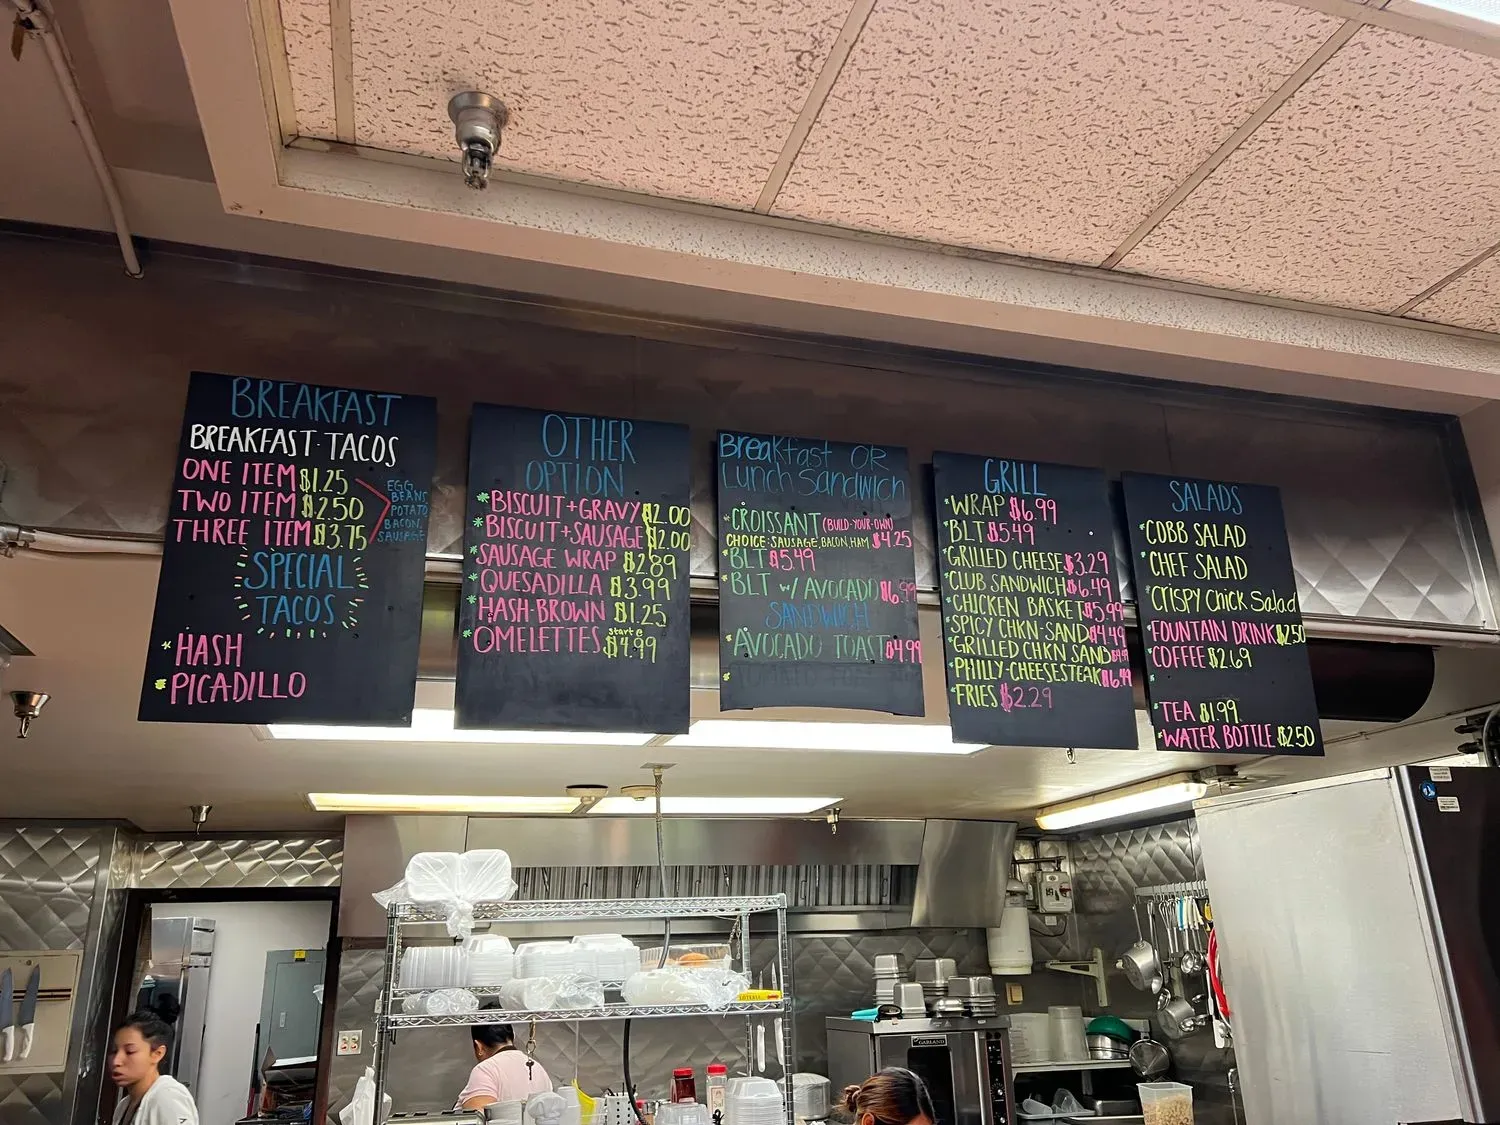 BREAKFAST
BREAKFAST-TACOS
ONE ITEM $1.25
TWO ITEM $2.50
THREE ITEM $3.75
EGG,
BEANS
POTATO
BACON,
SAUSAGE
SPECIAL
TACOS
* HASH
* PICADILLO
OTHER
OPTION
* BISCUIT+GRAVY $2.00
* BISCUIT+SAUSAGE $2.00
* SAUSAGE WRAP $2.89
* QUESADILLA $3.99
* HASH-BROWN $1.25
* OMELETTES starte $4.99
Breakfast OR
Lunch Sandwich
* CROISSANT (BUILD-YOUR-OWN)
CHOICE: SAUSAGE, BACON, HAM $4.25
* BLT $5.49
* BLT w/ AVOCADO $6.99
SANDWICH
* AVOCADO TOAST $4.99
*
GRILL
* WRAP $6.99
* BLT $5.49
* GRILLED CHEESE $3.29
* CLUB SANDWICH $6.49
* CHICKEN BASKET $5.99
* SPICY CHKN-SAND $4.49
* GRILLED CHKN SAND
* PHILLY-CHEESESTEAK $6.49
* FRIES $2.29
SALADS
* COBB SALAD
* CHEF SALAD
* CRISPY Chick Salad
* FOUNTAIN DRINK $2.50
* COFFEE $2.69
*
* TEA $1.99
* WATER BOTTLE $2.50
GARLAND